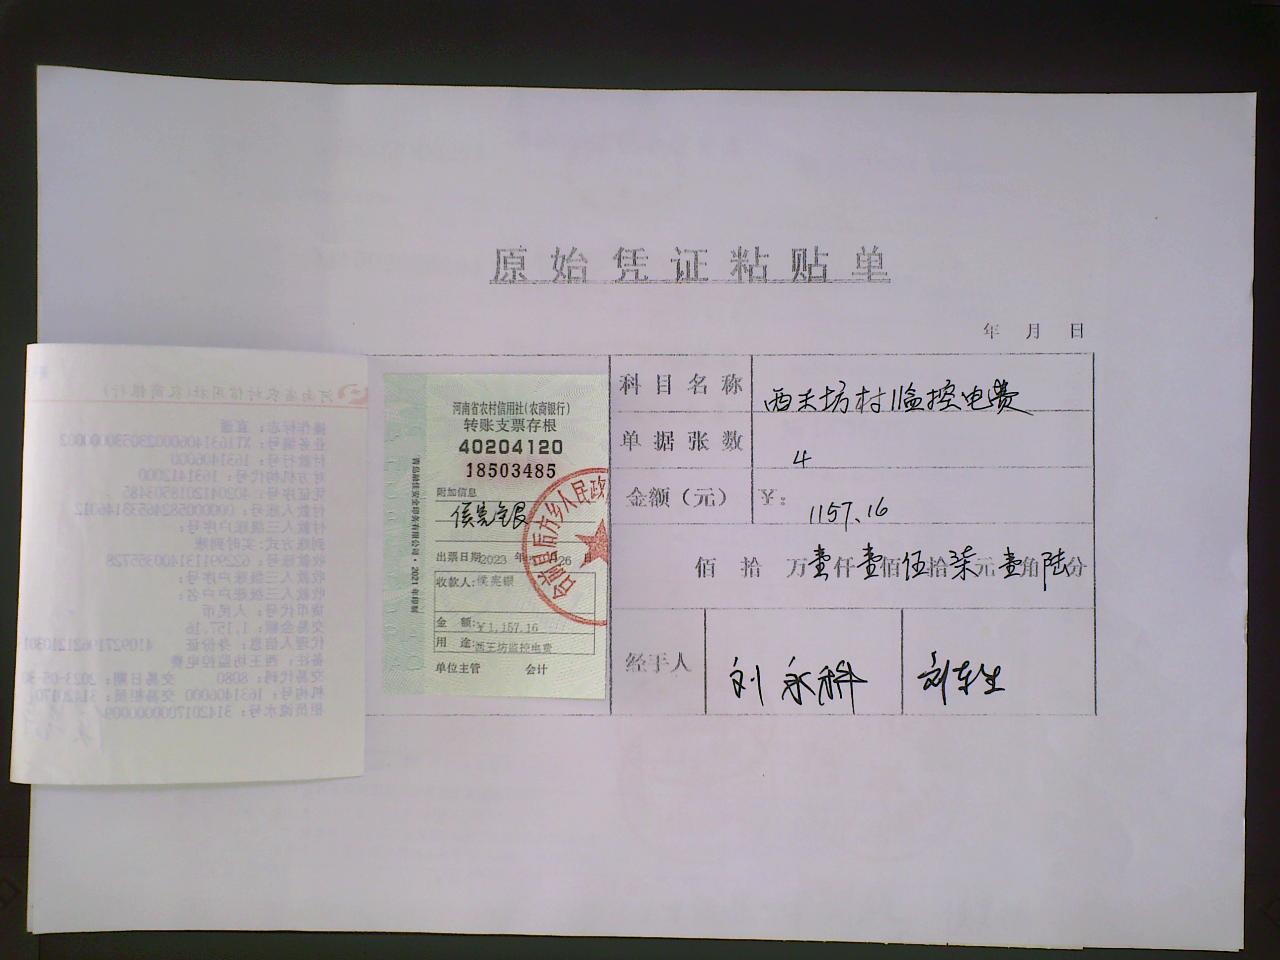 原始凭证粘贴单
年 月 日
河南省农村信用社(农商银行)
转账支票存根
40204120
18503485
附加信息
侯宪银
出票日期 2023 年 26 日
收款人:侯宪银
金 额:¥1,157.16
用 途:西王坊监控电费
单位主管 会计
台前县后方乡人民政
科目名称 西王坊村监控电费
单据张数 4
金额(元) ¥: 1157.16
佰 拾 万壹仟壹佰伍拾柒元壹角陆分
经手人 刘永科 刘东生
河南省农村信用社(农商银行)
操作标志:直通
付款行号:1631406000
对方机构代号:1631412000
凭证序号:4020412018503485
付款人三级账户序号:
到账方式:实时到账
收款账号:622991131400355728
收款人三级账户序号:
收款人三级账户户名:
货币代号:人民币
交易金额:1,157.16
代理人信息:身份证
备注:西王坊监控电费
交易代码:8080 交易日期:2023-05-30
机构号:1631406000 交易柜员: